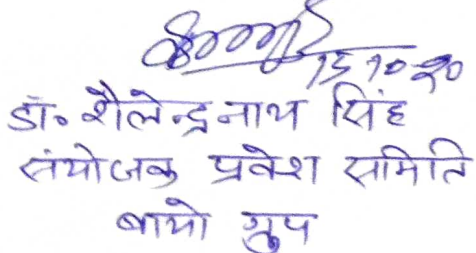 15.10.20
डॉ० शैलेन्द्र नाथ सिंह
संयोजक प्रवेश समिति
बायो ग्रुप